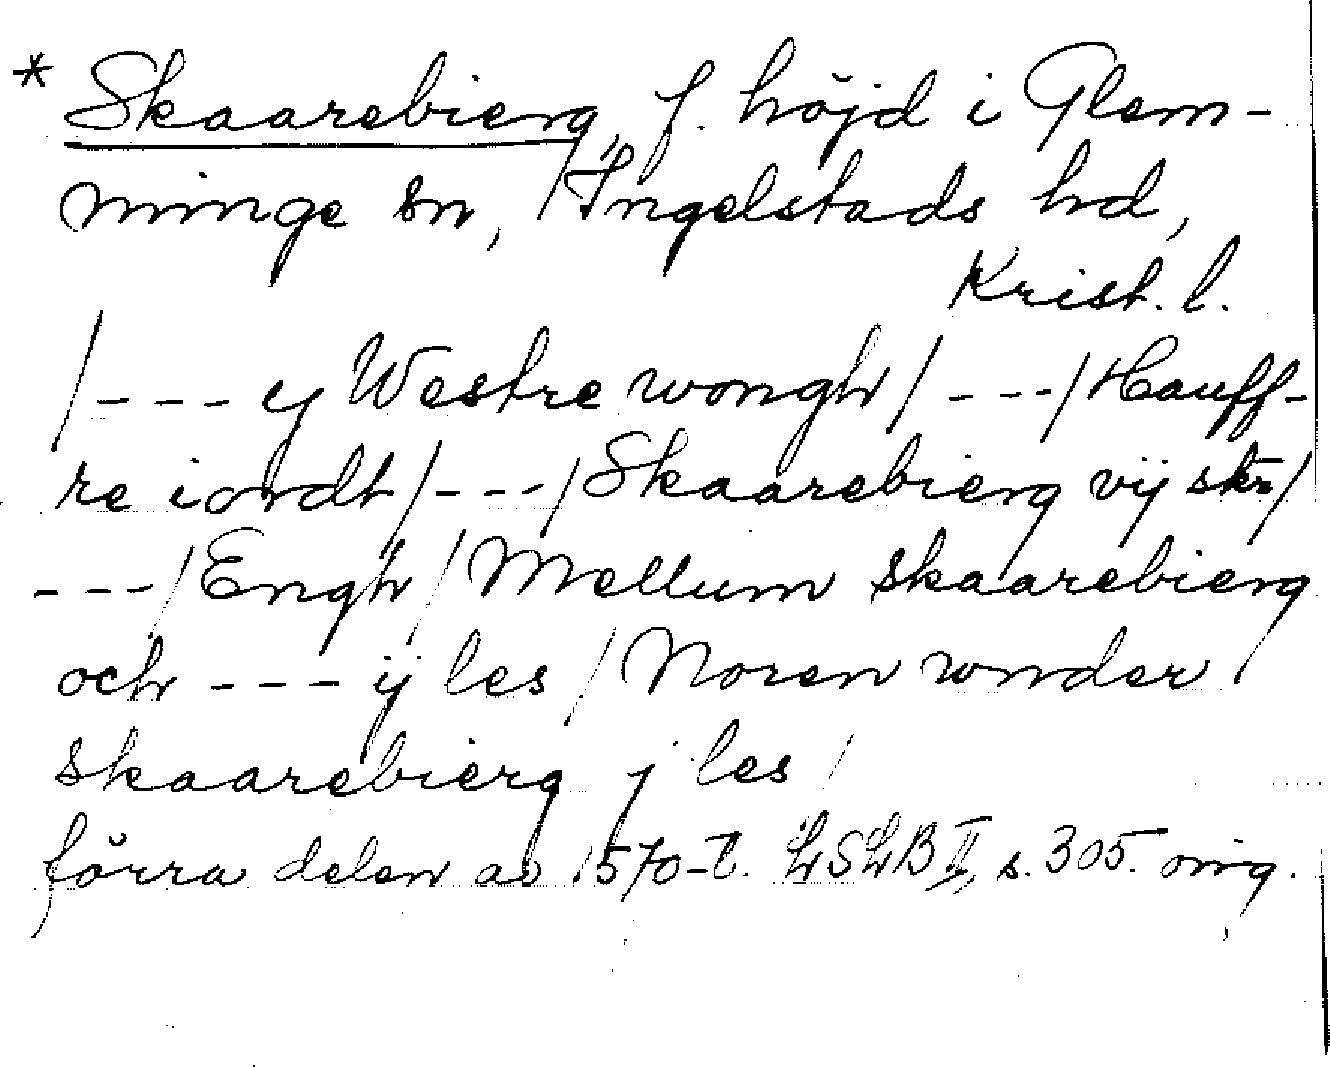 * Skaarebierg, f. höjd i Glem-
minge sn, Ingelstads hd,
Krist. l.
/--- ej Westre wongh / --- / Hauff-
re iordt / --- / Skaarebierg vij skr /
--- / Engh / Mellum skaarebierg
och --- ij les / Noren wnder
skaarebierg j les /
förra delen av 1570-t. LSLB II, s. 305. orig.